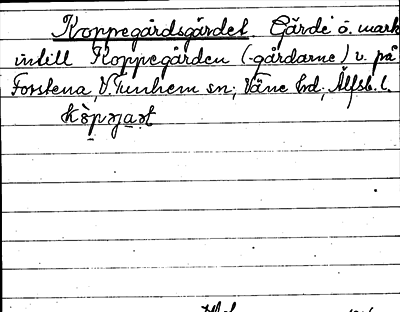 Koppegårdsgärdet Gärde o. mark
intill Koppegården (-gårdarne) v. på
Forstena, V. Tunhem sn; Väne hd; Älfsb. l.